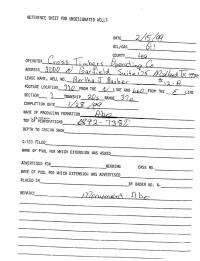 REFERENCE SHEET FOR UNDESIGNATED WELLS
DATE 2/5/99
OIL/GAS Oil
COUNTY Lea
OPERATOR Cross Timbers Operating Co
ADDRESS 3000 N Garfield Suite 175 Midland TX 79705
LEASE NAME, WELL NO. Bertha J Barber #12-A
FOOTAGE LOCATION 330 FROM THE N LINE AND 660 FROM THE E LINE
SECTION TOWNSHIP 20s RANGE 37e
COMPLETION DATE 1/28/99
NAME OF PRODUCING FORMATION Abo
TOP OF PERFORATIONS 6892-7380
DEPTH TO CASING SHOE
C-123 FILED
NAME OF POOL FOR WHICH EXTENSION WAS ASKED
ADVERTISED FOR HEARING CASE NO.
NAME OF POOL FOR WHICH EXTENSION WAS ADVERTISED
PLACED IN BY ORDER NO. R-
REMARKS Monument Abo